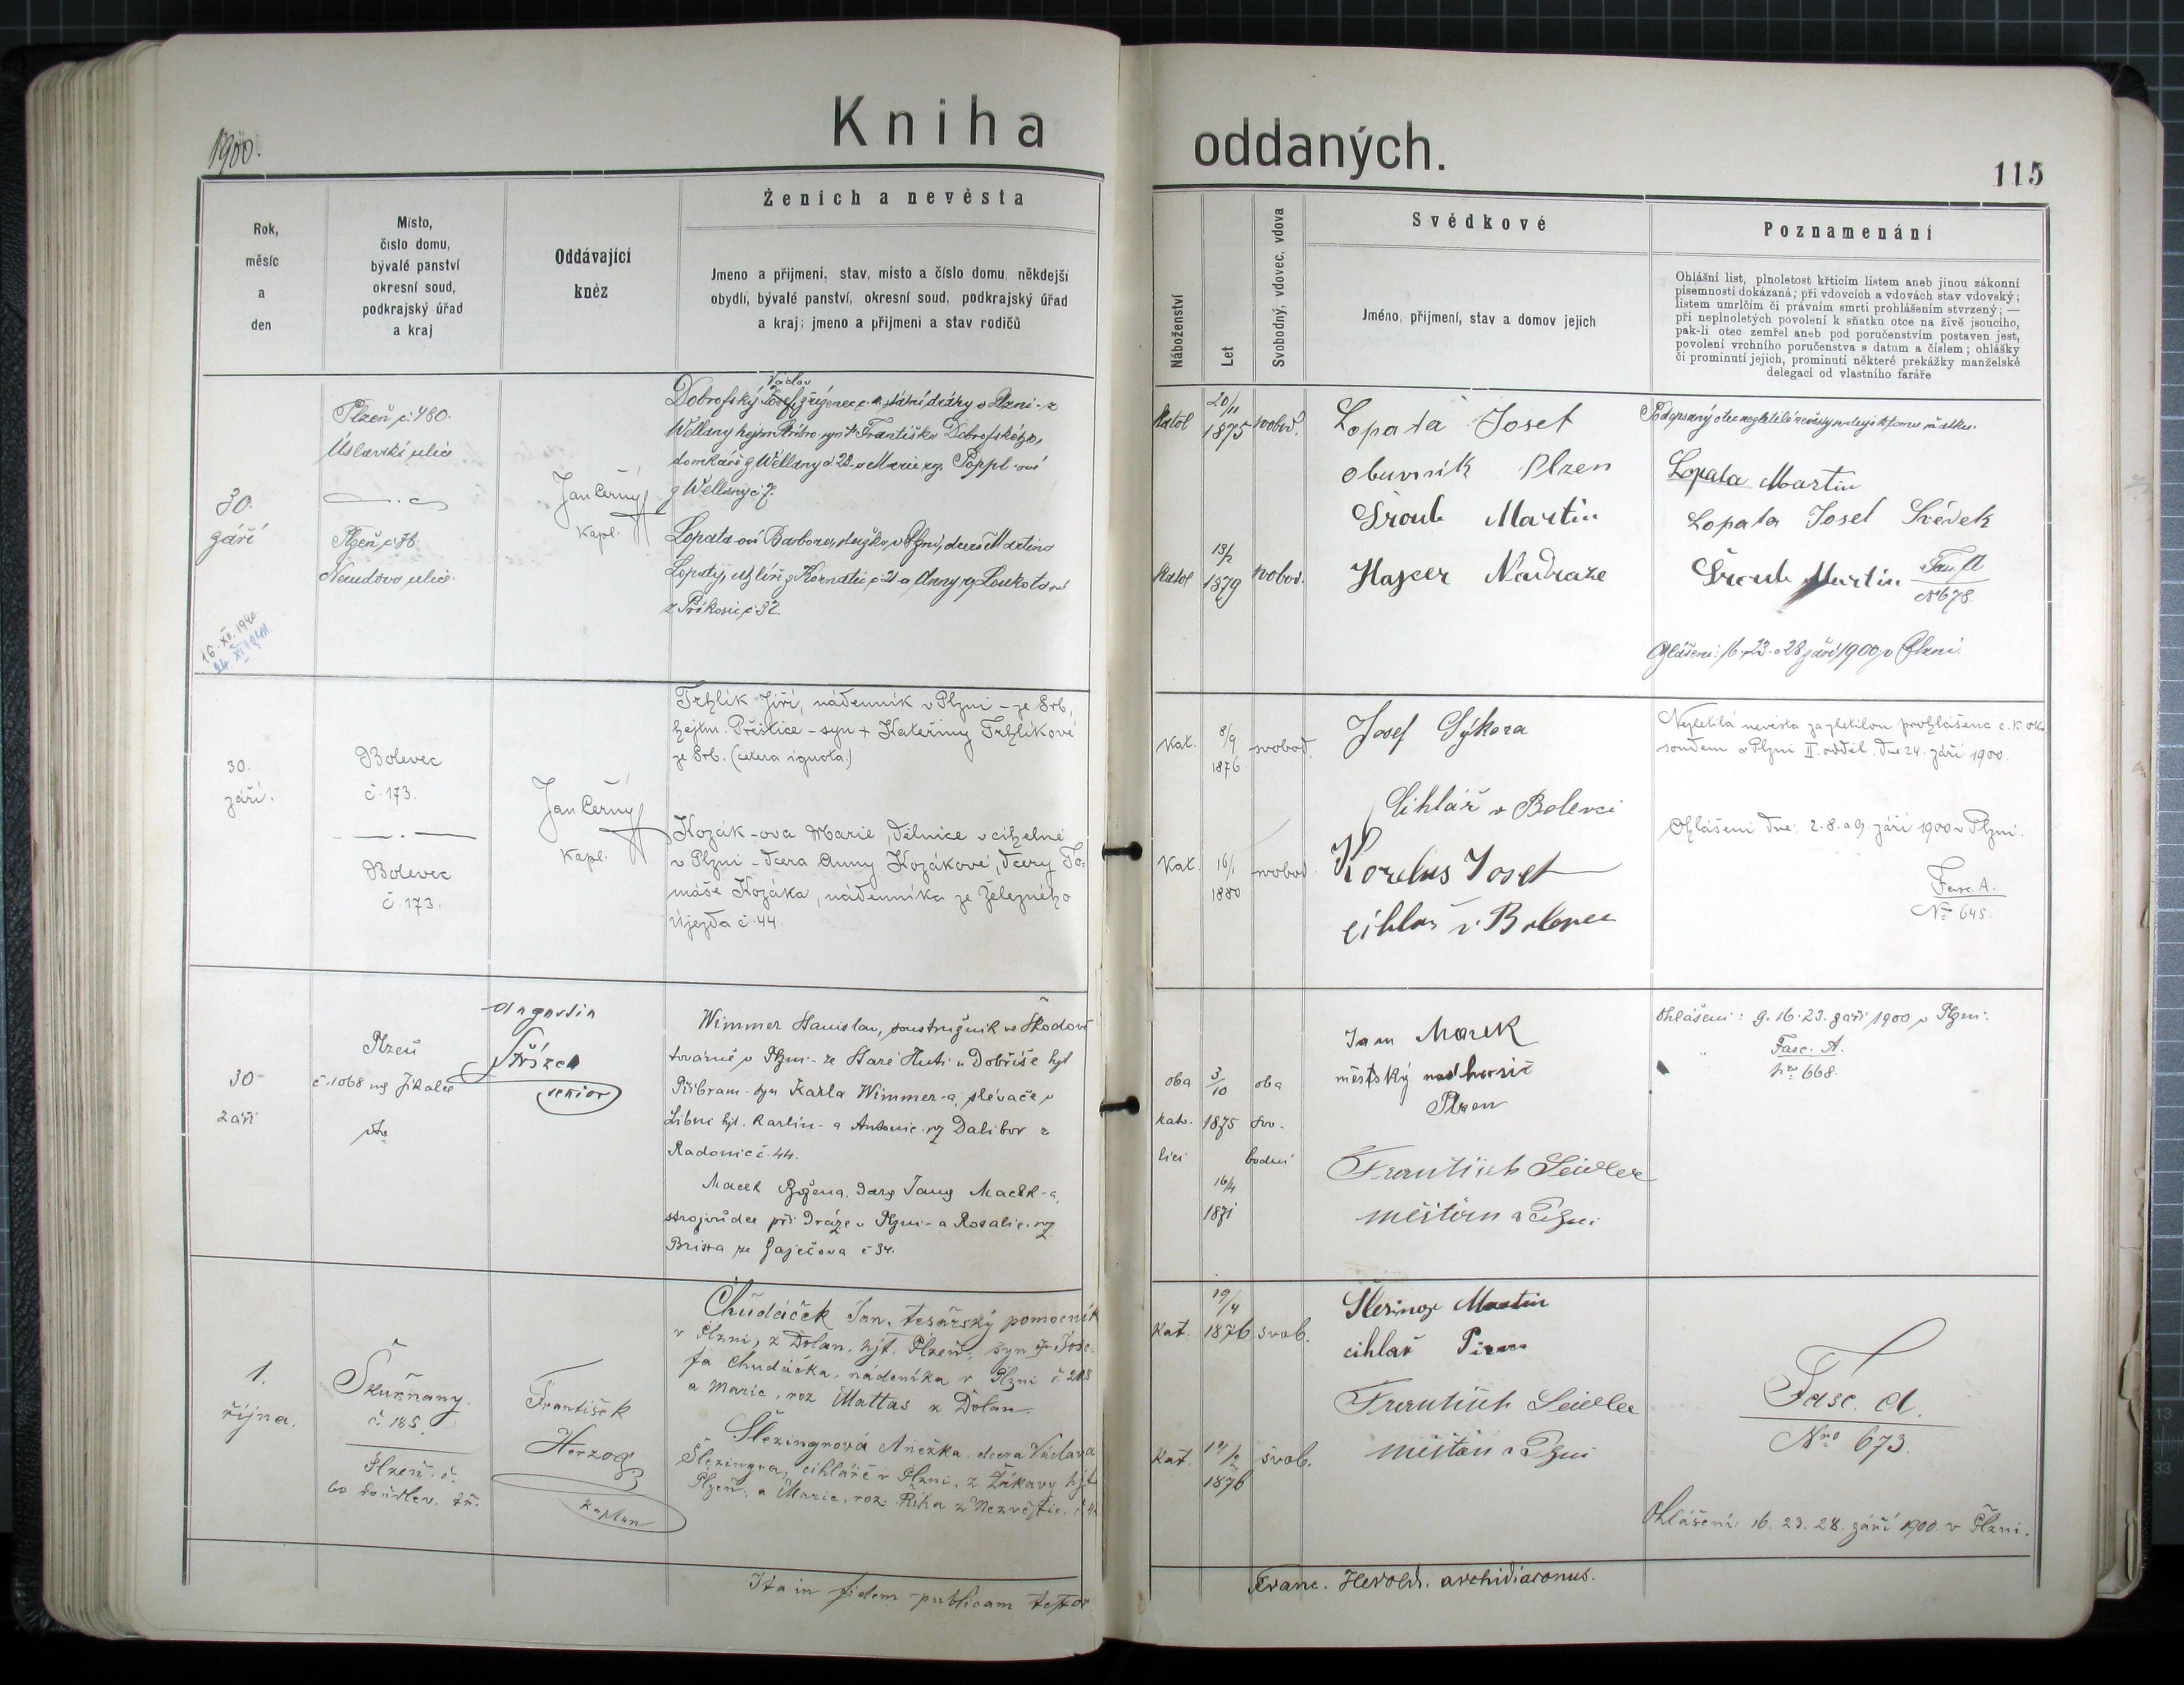 Kniha
oddaných.
1900.
115
Rok,
měsíc
a
den
Místo,
číslo domu,
bývalé panství
okresní soud,
podkrajský úřad
a kraj
Oddávající
kněz
Ženich a nevěsta
Jmeno a přijmení, stav, místo a číslo domu, někdejší
obydlí, bývalé panství, okresní soud, podkrajský úřad
a kraj; jmeno a přijmení a stav rodičů
Náboženství
Let
Svobodný, vdovec, vdova
Svědkové
Jméno, přijmení, stav a domov jejich
Poznamenání
Ohlášní list, plnoletost křticím listem aneb jinou zákonní
písemností dokázaná; při vdovcích a vdovách stav vdovský;
listem umrlčím či právním smrti prohlášením stvrzený; —
při neplnoletých povolení k sňatku otce na živě jsoucího,
pak-li otec zemřel aneb pod poručenstvím postaven jest,
povolení vrchního poručenstva s datum a číslem; ohlášky
či prominutí jejich, prominutí některé prekážky manželské
delegací od vlastního faráře
30.
září
16. XII. 1940
24. XI 1941.
Plzeň č. 480.
Úslavská ulice
Plzeň
ulice.
Jan Černý
Kapl.
Václav
Dobrofský Josef, zřízenec státní dráhy v Plzni - z
Wellany hejtm. Stříbro, syn † Františka Dobrofského,
domkáře z Wellany č 28 a Marie roz. Poppl-ové
z Wellany č 7.
Lopata-ová Barbora, služka v Plzni, dcera Martina
Lopaty, z Kornatic č 2 a Anny roz. Loukota-ové
z Příkosic č 32.
Katol
20/11
1875
svobod.
Katol
13/2
1879
svobod.
Lopata Josef
obuvník Plzen
Šroub Martin
Nadraze
Podepsaný otec nezletilé nevěsty svoluje k tomu sňatku.
Lopata Martin
Lopata Josef Svědek
Šroub Martin
Fas. A
No 678.
Ohlášeni: 16. 23. a 28 září 1900 v Plzni.
30.
září.
Bolevec
č. 173.
Bolevec
č. 173.
Jan Černý
Kapl.
Trhlík Jiří, nádenník v Plzni - ze Srb,
hejtm. Přeštice - syn + Kateřiny Trhlíkové
ze Srb. (cetera ignota.)
Kozák-ova Marie, dělnice v cihelně
v Plzni - dcera Anny Kozákové, dcery To-
máše Kozáka, nádenníka ze Železného
Újezda č. 44.
Kat.
8/9
1876
svobod.
Kat.
16/1
1880
svobod
Josef Sýkora
Cihlář v Bolevci
Korelus Josef
cihlář v Bolevci
Nezletilá nevěsta za zletilou prohlášena c. k. okr.
soudem v Plzni II. odděl. dne 24. září 1900.
Ohlášeni dne: 2. 8. a 9. září 1900 v Plzni.
Fasc. A.
No 645.
30
září
Plzeň
č. 1068 na Jíkalce
Augustin
Střízek
senior
Wimmer Stanislav, soustružník ve Škodově
továrně v Plzni - ze Staré Huti u Dobříše hjt
Příbram - syn Karla Wimmer-a, slévače v
Libni hjt. Karlín - a Antonie roz Dalibor z
Radonic č. 44.
Macek Božena, dcera Jana Macek-a,
strojvůdce při dráze v Plzni - a Rosalie roz
ze Zaječova č 34.
oba
kato-
lici
3/10
1875
16/4
1871
oba
svo-
bodni
Jan Marek
městský
Plzen
František Seidler
měšťan v Plzni
Ohlášeni: 9. 16. 23. září 1900 v Plzni.
Fasc. A.
Nro 668.
1.
října.
Škurňany.
č. 185.
Plzeň. č.
60 doudlev. tř.
František
Herzog
kaplan
Chudáček Jan, tesařský pomocník
v Plzni, z Dolan, hjt. Plzeň, syn Jose-
fa Chudáčka, nádeníka v Plzni č 208
a Marie, roz Mattas z Dolan
Šlezingrová Anežka, dcera Václava
Šlezingra, cihláře v Plzni, z Žákavy hjt
Plzeň, a Marie, roz Říha z Nezvěstic.
Kat.
19/4
1876
svob.
Kat.
1876
svob.
Martin
cihlař
František Seidler
měšťan v Plzni
Fasc. A.
Nro 673.
Ohlášení: 16. 23. 28. září 1900 v Plzni.
Ita in fidem publicam testor
Franc. Herold. archidiaconus.